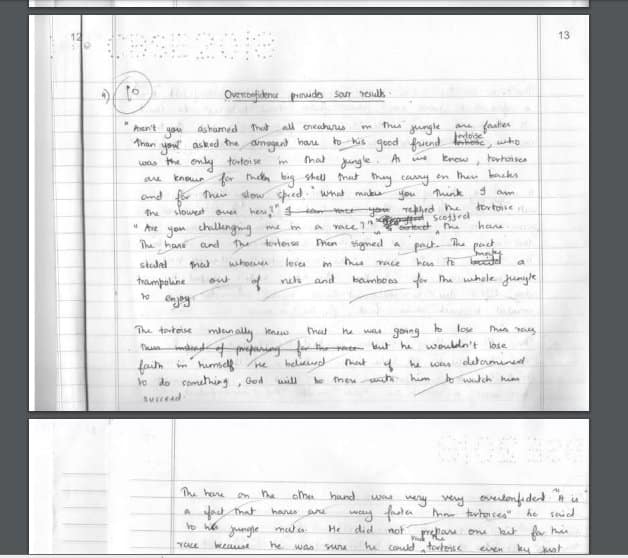 12
13
4) 10
Overconfidence provides sour results.
"Aren't you ashamed that all creatures in this jungle are faster
than you" asked the arrogant hare to his good friend tortoise, who
was the only tortoise in that jungle. As we know, tortoises
are known for their big shell that they carry on their backs
and for their slow speed. "What makes you think I am
the slowest over here?" I can race you replied the tortoise.
"Are you challenging me in a race?" scoffed the hare.
The hare and the tortoise then signed a pact. The pact
stated that whoever loses in this race has to make a
trampoline out of nets and bamboos for the whole jungle
to enjoy.
The tortoise mentally knew that he was going to lose this race,
Thus instead of preparing for the race but he wouldn't lose
faith in himself he believed that if he was determined
to do something, God will be there with him to watch him
succeed.
The hare on the other hand was very very overconfident. "It is
a fact that hares are way faster than tortoises" he said
to his jungle mates. He did not prepare one bit for this
race because he was sure he could tortoise even by just